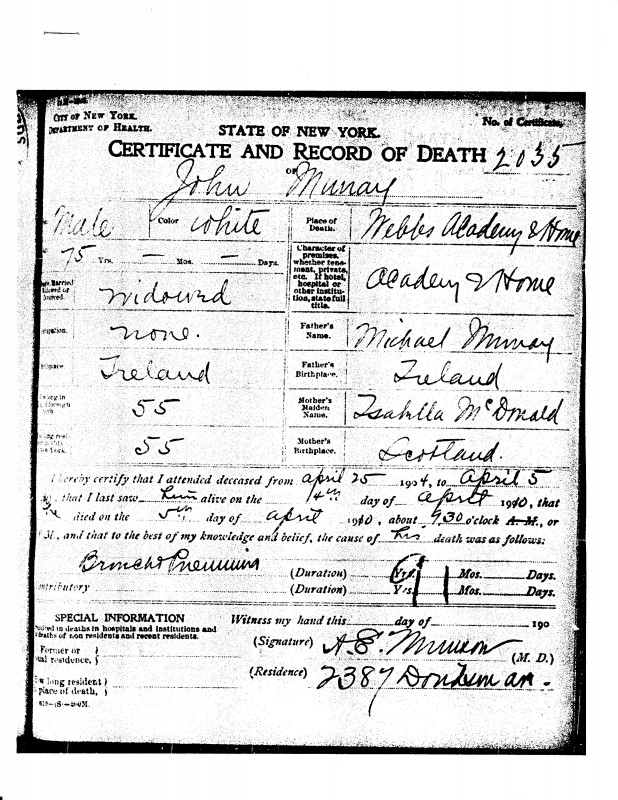 CITY OF NEW YORK.
DEPARTMENT OF HEALTH.
No. of Certificate,
STATE OF NEW YORK.
CERTIFICATE AND RECORD OF DEATH 2035
OF
John Murray
Male Color White
Place of Death. Webbs Academy & Home
75 Yrs. — Mos. — Days.
Character of premises, whether tenement, private, etc. If hotel, hospital or other institution, state full title. Academy & Home
Widowed
none.
Father's Name. Michael Murray
Ireland
Father's Birthplace. Ireland
55
Mother's Maiden Name. Isabella McDonald
55
Mother's Birthplace. Scotland.
I hereby certify that I attended deceased from April 25 1904, to April 5
, that I last saw him alive on the 4th day of April 1910, that
died on the 5th day of April 1910, about 930 o'clock A. M., or
M., and that to the best of my knowledge and belief, the cause of his death was as follows:
Broncho Pneumonia (Duration) Yrs. Mos. Days.
(Duration) Yrs. Mos. Days.
SPECIAL INFORMATION
in deaths in hospitals and institutions and
deaths of non residents and recent residents.
Witness my hand this day of 190
Former or
residence,
(Signature) (M. D.)
long resident
place of death,
(Residence) 2387